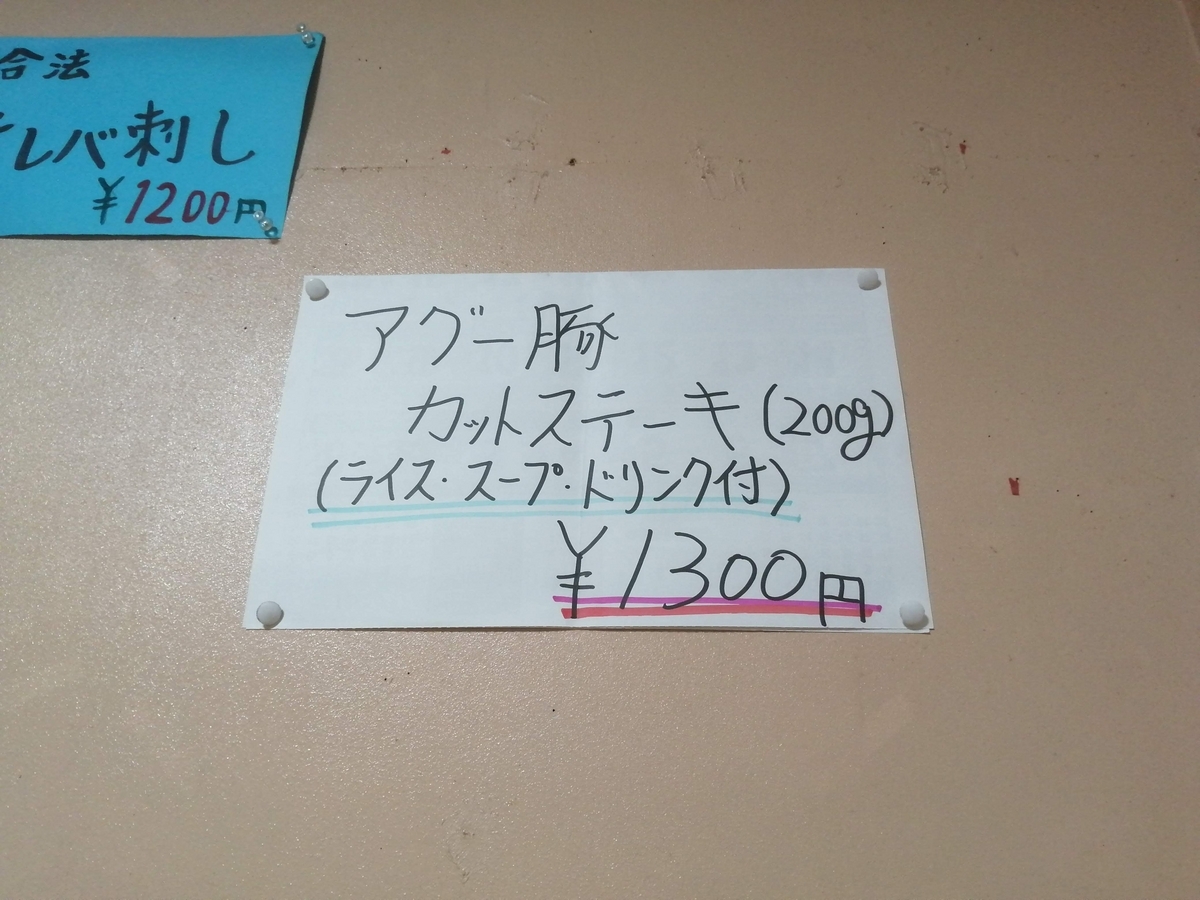 合法
レバ刺し
¥1200円
アグー豚
カットステーキ(200g)
(ライス・スープ・ドリンク付)
¥1300円